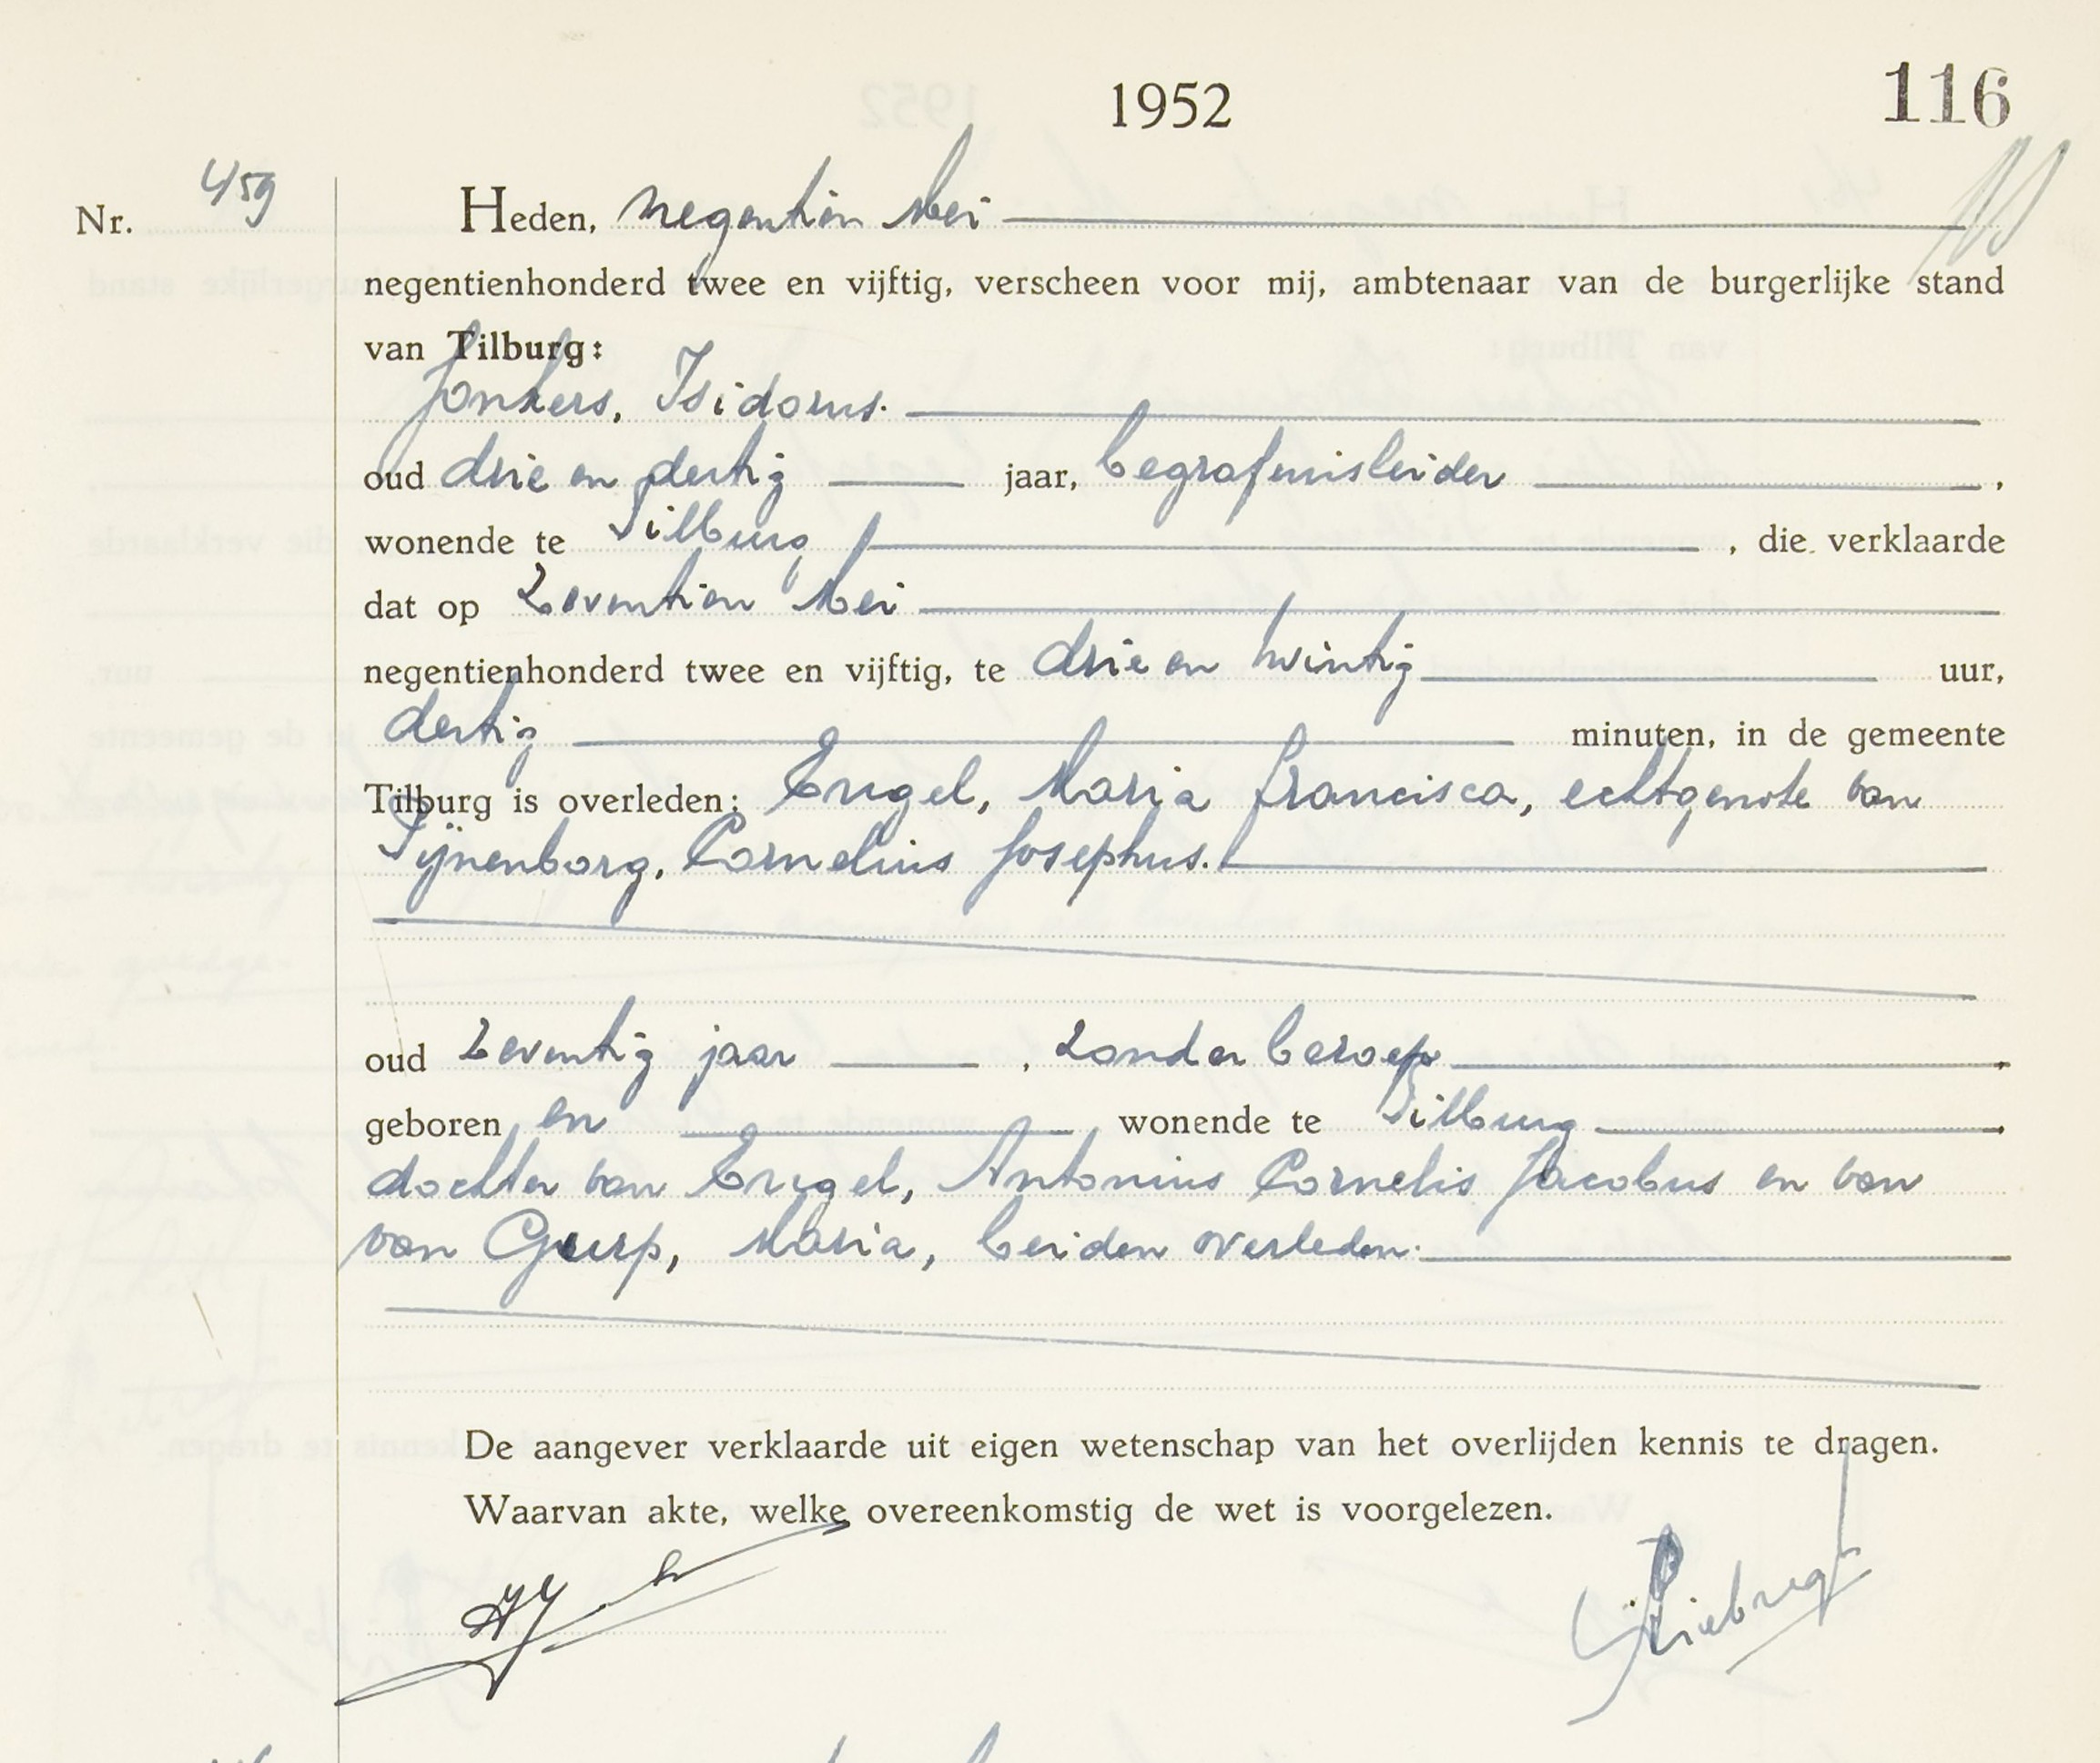 1952
116
Nr. 459
Heden, negentien Mei
negentienhonderd twee en vijftig, verscheen voor mij, ambtenaar van de burgerlijke stand
van Tilburg:
Jonkers, Isidorus.
oud drie en dertig jaar, begrafenisleider ,
wonende te Tilburg , die verklaarde
dat op Zeventien Mei
negentienhonderd twee en vijftig, te drie en twintig uur,
dertig minuten, in de gemeente
Tilburg is overleden: Engel, Maria Francisca, echtgenote van
Pijnenborg, Cornelius Josephus.
oud Zeventig jaar , zonder beroep ,
geboren en wonende te Tilburg ,
dochter van Engel, Antonius Cornelis Jacobus en van
van Gurp, Maria, beiden overleden.
De aangever verklaarde uit eigen wetenschap van het overlijden kennis te dragen.
Waarvan akte, welke overeenkomstig de wet is voorgelezen.